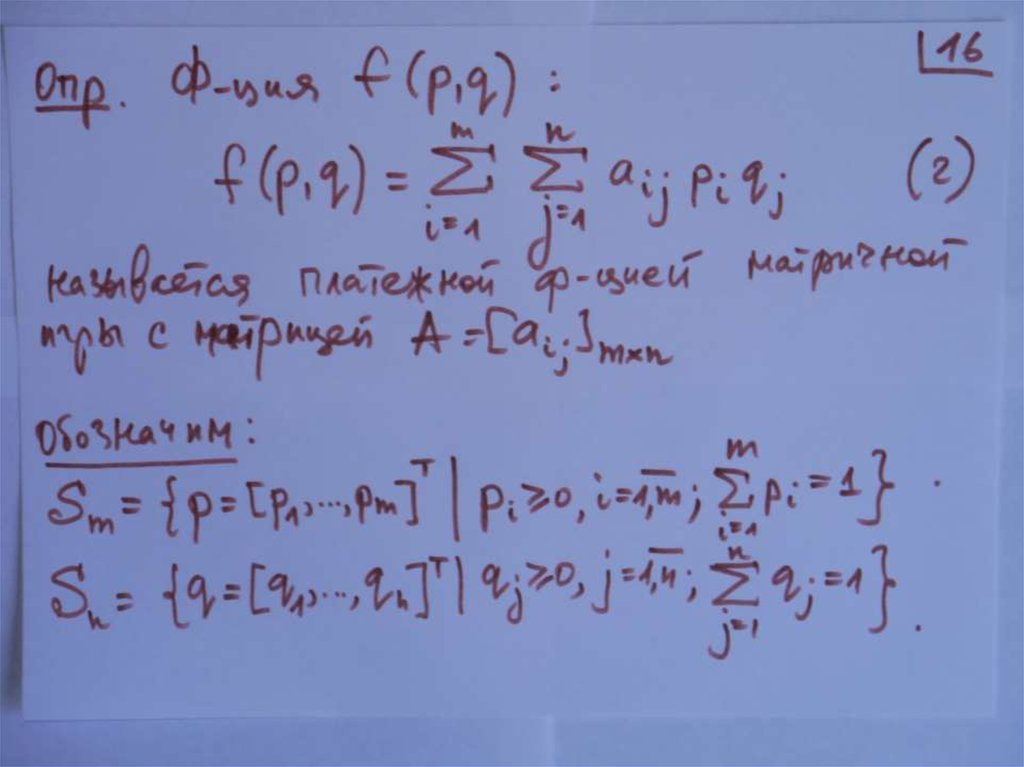 16
Опр. Ф-ция f(p,q) :
f(p,q) = ∑_{i=1}^{m} ∑_{j=1}^{n} a_{ij} p_i q_j (2)
называется платежной ф-цией матричной
игры с матрицей A = [a_{ij}]_{m×n}
Обозначим:
S_m = {p = [p_1,...,p_m]^T | p_i ⩾ 0, i = \overline{1,m}; ∑_{i=1}^{m} p_i = 1}.
S_n = {q = [q_1,...,q_n]^T | q_j ⩾ 0, j = \overline{1,n}; ∑_{j=1}^{n} q_j = 1}.